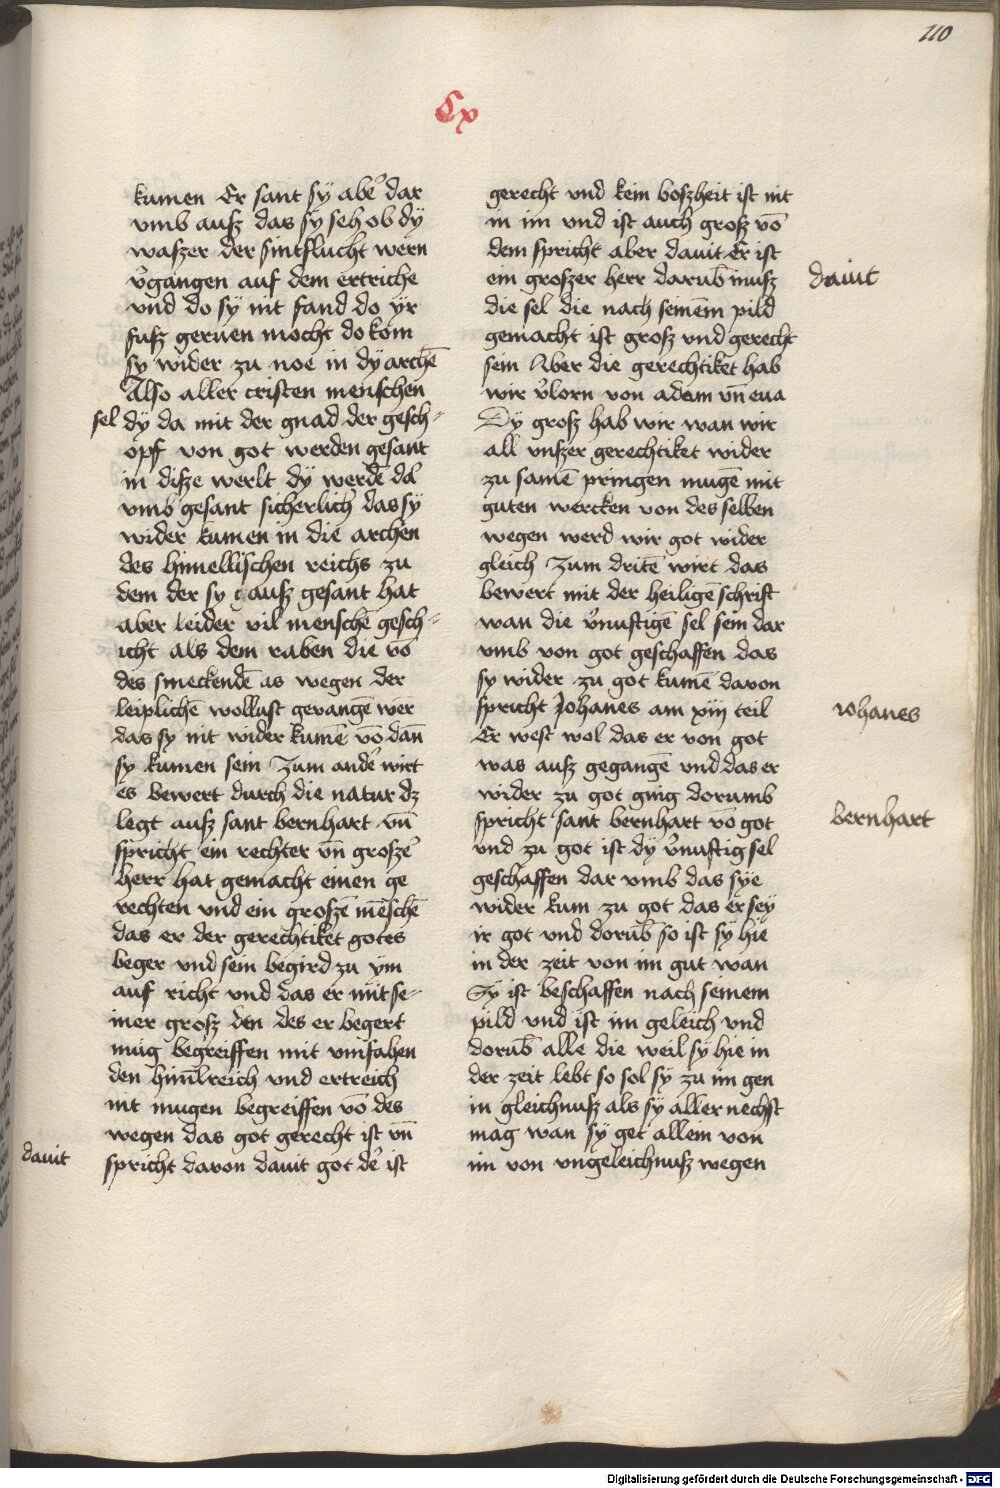 110
Cx
kumen Er sant sÿ abe᷒ dar
vmb aufz das sy seh ob dÿ
wafzer der sintflucht wern
v᷒gangen auf dem ertriche
vnd do sÿ nit fand do ÿr
fufz geruen mocht do kom
sy wider zu noe in dÿ archē
Also aller cristen menschen
sel dÿ da mit der gnad der gesch⸗
opf von got werden gesant
in difze werlt dÿ werdē da᷒
vmb gesant sicherlich das sÿ
wider kumen in die archen
des himellischen reichs zu
dem der sy aufz gesant hat
aber leider vil menschē gesch⸗
icht als dem raben die vō
des smeckendē as wegen der
leiplichē wollust gevangē wer
das sy nit wider kumē vō dan̄
sy kumen sein Zum ande᷒ wirt
es bewert durch die natur dz
legt aufz sant bernhart vn̄
spricht ein rechter vn̄ grofze᷒
herr hat gemacht einen ge
rechten vnd ein grofzē mēschē
das er der gerechtiket gotes
beger vnd sein begird zu ÿm
auf richt vnd das er mit se⸗
iner grofz den des er begert
müg begreiffen mit vmfahen
den himl̄reich vnd ertreich
nit mugen begreiffen vō des
wegen das got gerecht ist vn̄
dauit
spricht davon dauit got de᷒ ist
gerecht vnd kein bofzheit ist nit
in im vnd ist auch grofz vō
dem spricht aber dauit Er ist
ein grofzer herr darub̄ mufz
dauit
die sel die nach seinēm pild
gemacht ist grofz vnd gerecht
sein Aber die gerechtiket hab
wir v᷒lorn von adam vn̄ eua
Dÿ grofz hab wir wan wir
all vnfzer gerechtiket wider
zu samē pringen mugē mit
guten wercken von des selben
wegen werd wir got wider
gleich Zum dritē wirt das
bewert mit der heiligē schrift
wan die v᷒nuftigē sel sein dar
vmb von got geschaffen das
sy wider zu got kumē davon
spricht Johanes am xiij teil
iohanes
Er west wol das er von got
was aufz gegangē vnd das er
wider zu got ging dorumb
spricht sant bernhart vō got
bernhart
vnd zu got ist dÿ v᷒nuftig sel
geschaffen dar vmb das sye
wider kum zu got das er sey
ir got vnd dorub̄ so ist sÿ hie
in der zeit von im gut wan
Sy ist beschaffen nach seinem
pild vnd ist im geleich vnd
dorub̄ alle die weil sÿ hie in
der zeit lebt so sol sÿ zu im gen
in gleichnufz als sÿ aller nechst
mag wan sÿ get allein von
im von vngeleichnufz wegen
Digitalisierung gefördert durch die Deutsche Forschungsgemeinschaft - DFG